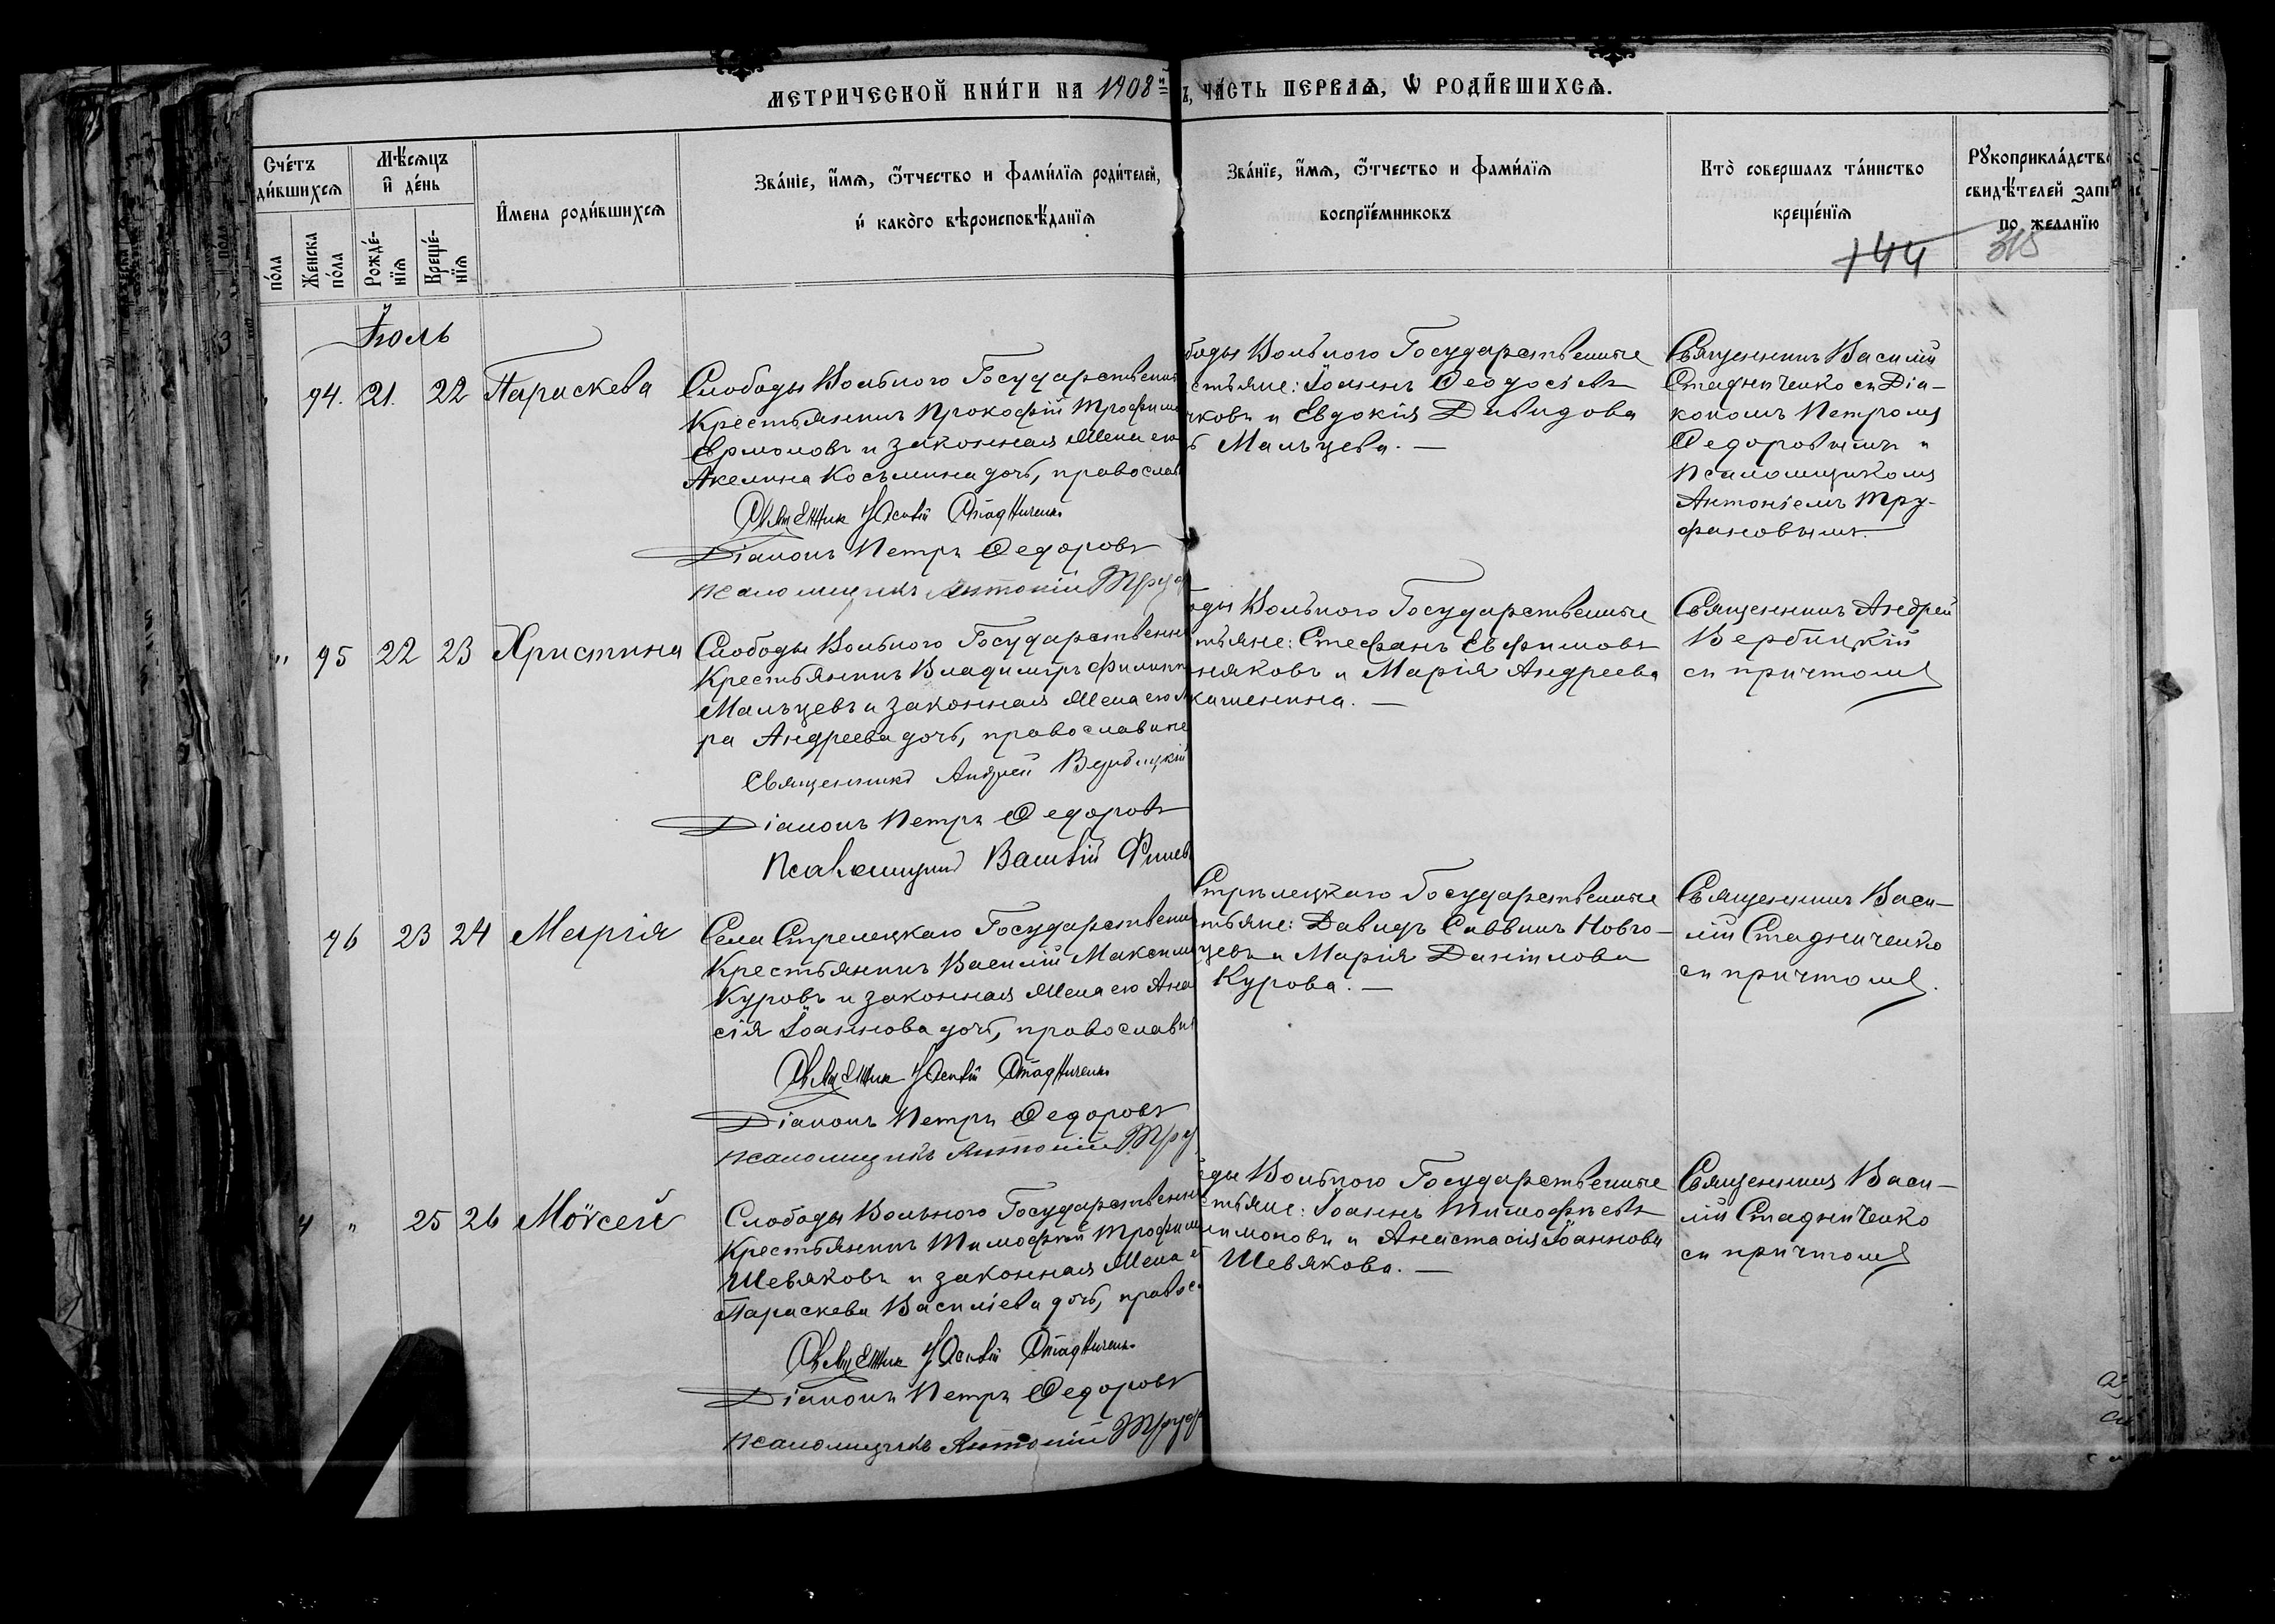 МЕТРИЧЕСКОЙ КНИ́ГИ НА 1908й
Ъ, ЧА́СТЬ ПЕРВАѦ, Ѡ РОДИ́ВШИХСѦ.
Сче́тъ
ди́вшихсѧ
по́ла
Женска
по́ла
Мѣ́сѧцъ
и҆ де́нь
Рожде́-
нїѧ
Креще́-
нїѧ
И҆мена роди́вшихсѧ
Зва́нїе, и҆́мѧ, ѻ҆́тчество и фами́лїѧ роди́телей,
и҆ како́го вѣроисповѣ́данїѧ
Зва́нїе, и҆́мѧ, ѻ҆́тчество и фами́лїѧ
воспрїе́мниковъ
Кто̀ совершалъ та́инство
креще́нїѧ
Рꙋкоприкла́дство
свидѣ́телей запис
по желанїю
144
315
Іюль
" 94. 21. 22 Параскева
Слободы Вольного Государственн
Крестьянинъ Прокофій Трофимо
Ермоловъ и законная жена его
Акелина Косьмина дочь, православ
Священник Василій Стадниченко
Діаконъ Петръ Ѳедоровъ
Псаломщикъ Антоній Труф
боды Вольного Государственные
стьяне: Іоаннъ Ѳеодосіевъ
чковъ и Евдокія Давидова
Мальцева. —
Священникъ Василій
Стадниченко съ Діа-
кономъ Петромъ
Ѳедоровымъ и
Псаломщикомъ
Антоніемъ Тру-
фановымъ.
" 95 22 23 Христина
Слободы Вольного Государственн
Крестьянинъ Владиміръ Филипп
Мальцевъ и законная жена его
ра Андреева дочь, православные
Священникъ Андрей Вербицкій
Діаконъ Петръ Ѳедоровъ
Псаломщикъ Василій
оды Вольного Государственные
тьяне: Стефанъ Евфимовъ
няковъ и Марія Андреева
кашенина. —
Священникъ Андрей
Вербицкій
съ причтомъ
96 23 24 Марія
Села Стрелецкаго Государственн
Крестьянинъ Василій Максимо
Куровъ и законная жена его Ана
сія Іоаннова дочь, православн
Священник Василій Стадниченко
Діаконъ Петръ Ѳедоровъ
Псаломщикъ Антоній Тру
Стрѣлецкаго Государственные
тьяне: Давидъ Саввинъ Новго-
цевъ и Марія Даніилова
Курова. —
Священникъ Васи-
лій Стадниченко
съ причтомъ.
4 " 25 26 Моѵсей
Слободы Вольного Государственн
Крестьянинъ Тимофей Трофим
Шевяковъ и законная жена е
Параскева Василіева дочь, правос
Священник Василій Стадниченко
Діаконъ Петръ Ѳедоровъ
Псаломщикъ Антоній Труф
ды Вольного Государственные
стьяне: Іоаннъ Тимофѣевъ
имоновъ и Анастасія Іоаннова
Шевякова. —
Священникъ Васи-
лій Стадниченко
съ причтомъ